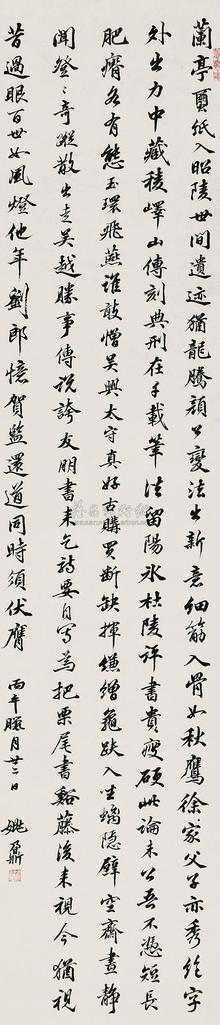 蘭亭繭紙入昭陵世間遺迹猶龍騰顏公變法出新意細筋入骨如秋鷹徐家父子亦秀絕字
外出力中藏稜嶧山傳刻典刑在千載筆法留陽冰杜陵評書貴瘦硬此論未公吾不憑短長
肥瘠各有態玉環飛燕誰敢憎吳興太守真好古購買斷缺揮縑繒龜趺入坐螭隱壁空齋晝靜
聞登登奇蹤散出走吳越勝事傳說誇友朋書來乞詩要自寫為把栗尾書谿藤後來視今猶視
昔過眼百世如風燈他年劉郎憶賀監還道同時須伏膺
丙午臘月廿二日 姚鼐